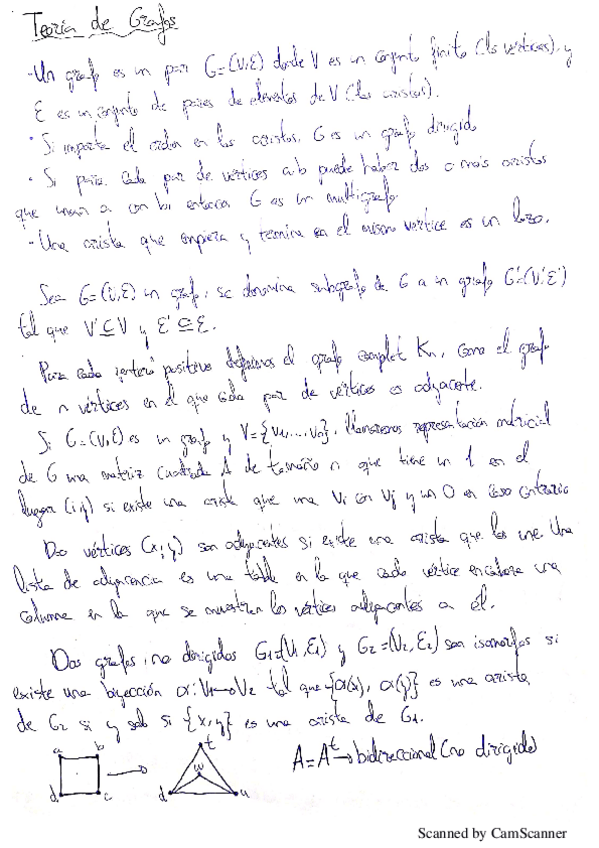 Teoría de Grafos
-Un grafo es un par G=(V,E) donde V es un conjunto finito (los vértices), y
E es un conjunto de pares de elementos de V (las aristas).
· Si importa el orden en las aristas, G es un grafo dirigido
· Si para cada par de vértices a,b puede haber dos o más aristas
que unan a con b, entonces G es un multigrafo
- Una arista que empieza y termina en el mismo vértice es un lazo.
Sea G=(V,E) un grafo, se denomina subgrafo de G a un grafo G'=(V',E')
tal que V'⊆V y E'⊆E.
Para cada entero positivo definimos el grafo complet Kn, como el grafo
de n vértices en el que cada par de vértices es adyacente.
Si G=(V,E) es un grafo y V={v1,...,vn}, llamaremos representación matricial
de G una matriz cuadrada A de tamaño n que tiene un 1 en el
lugar (i,j) si existe una arista que una Vi con Vj y un 0 en caso contrario
Dos vértices (x,y) son adyacentes si existe una arista que los une. Una
lista de adyacencia es una tabla en la que cada vértice encabeza una
columna en la que se muestran los vértices adyacentes a él.
Dos grafos no dirigidos G1=(V1,E1) y G2=(V2,E2) son isomorfos si
existe una biyección α:V1→V2 tal que {α(x), α(y)} es una arista
de G2 si y solo si {x,y} es una arista de G1.
a b t
w A=Aᵗ→bidireccional (no dirigido)
d c d u
Scanned by CamScanner